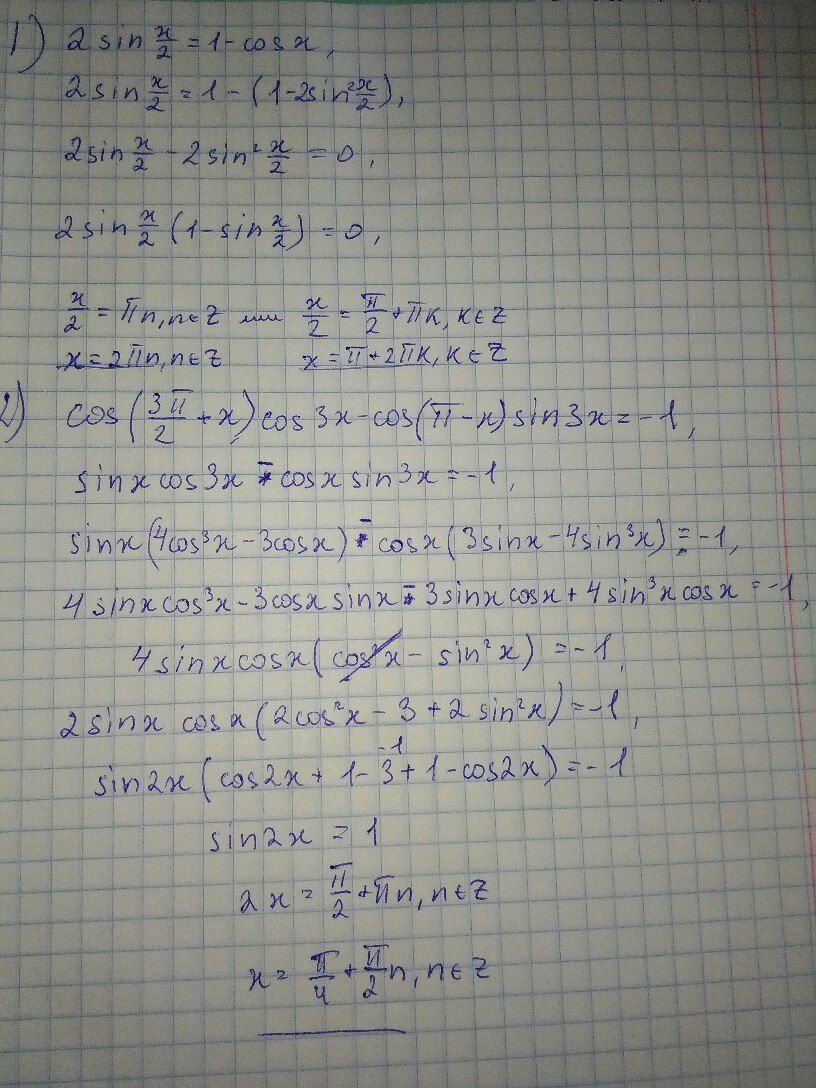 1) 2 sin x/2 = 1 - cos x,
2 sin x/2 = 1 - (1 - 2sin² x/2),
2 sin x/2 - 2 sin² x/2 = 0,
2 sin x/2 (1 - sin x/2) = 0,
x/2 = πn, n∈Z или x/2 = π/2 + πk, k∈Z
x = 2πn, n∈Z x = π + 2πk, k∈Z
2) cos(3π/2 + x) cos 3x - cos(π - x) sin 3x = -1,
sin x cos 3x - cos x sin 3x = -1,
sin x (4cos³x - 3cos x) - cos x (3sin x - 4sin³x) = -1,
4 sin x cos³x - 3cos x sin x - 3 sin x cos x + 4 sin³x cos x = -1,
4 sin x cos x (cos²x - sin²x) = -1,
2 sin x cos x (2cos²x - 3 + 2 sin²x) = -1,
-1
sin 2x (cos 2x + 1 - 3 + 1 - cos 2x) = -1
sin 2x = 1
2x = π/2 + πn, n∈Z
x = π/4 + π/2 n, n∈Z